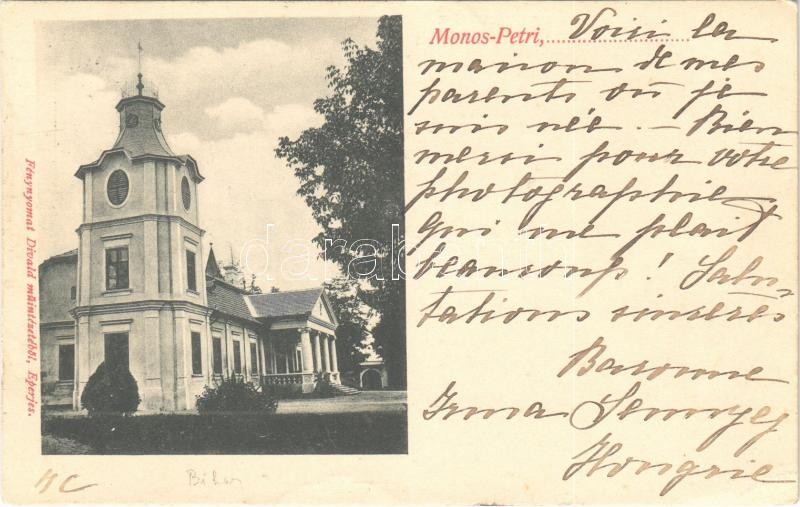 Monos-Petri, Voici la
maison de mes
parents où je
suis née. — Bien
merci pour votre
photographie
qui me plait
beaucoup! Salu-
tations sincères
Baronne
Irma Sennyey
Hongrie
Fénynyomat Divald műintézetéből, Eperjes.
Bihar
darabanth